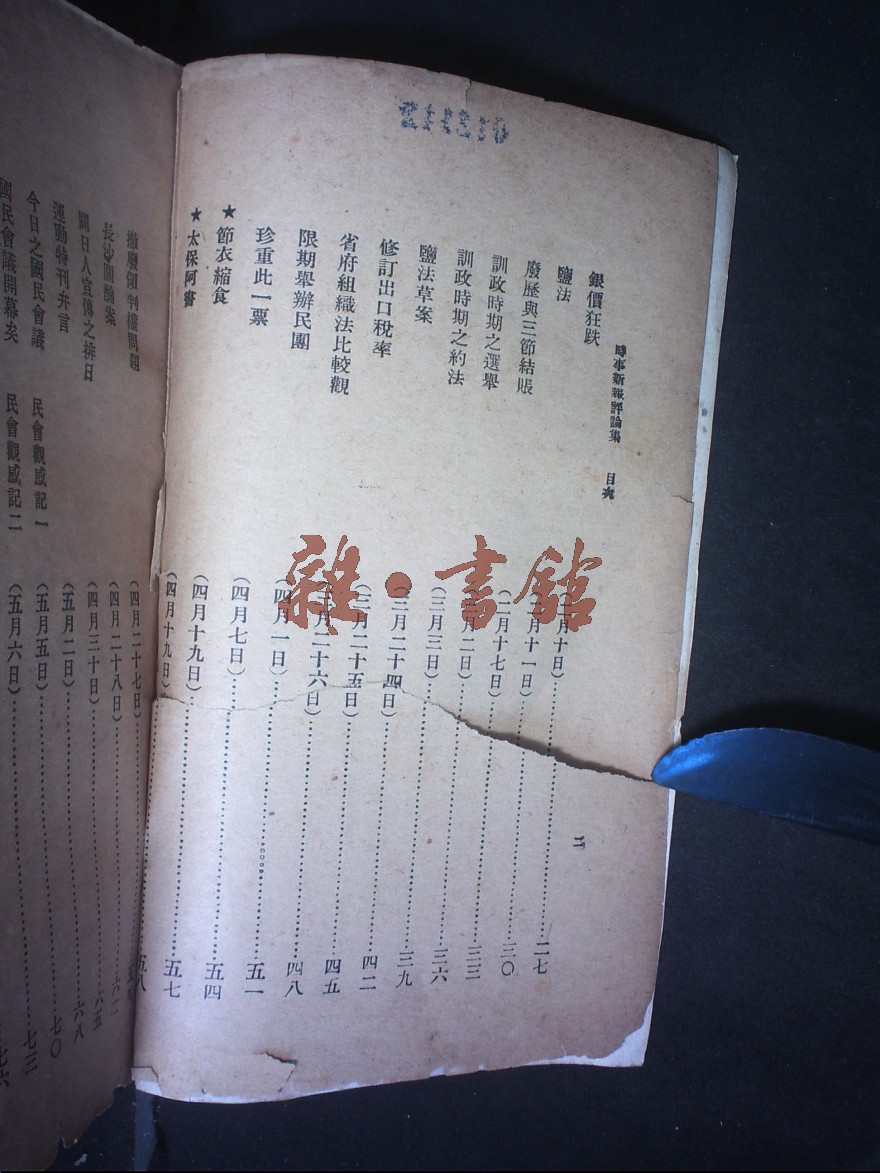 時事新報評論集 目次 二
銀價狂跌 月十日)……二七
鹽法 月十一日)……三〇
廢歷與三節結賬 月十七日)……三三
訓政時期之選舉 月二日)……三六
訓政時期之約法 (三月三日)……三九
鹽法草案 (三月二十四日)……四二
修訂出口稅率 (三月二十五日)……四五
省府組織法比較觀 月二十六日)……四八
限期舉辦民團 (四月一日)……五一
珍重此一票 (四月七日)……五四
★節衣縮食 (四月十九日)……五七
★太保阿書 (四月十九日)……五八
撤廢領判權問題 (四月二十七日)……六二
長沙閙醜案 (四月二十八日)……六五
闢日人宣傳之排日 (四月三十日)……六八
運動特刊弁言 (五月二日)……七〇
今日之國民會議 民會觀感記一 (五月五日)……七三
國民會議開幕矣 民會觀感記二 (五月六日)……七六
雜·書館